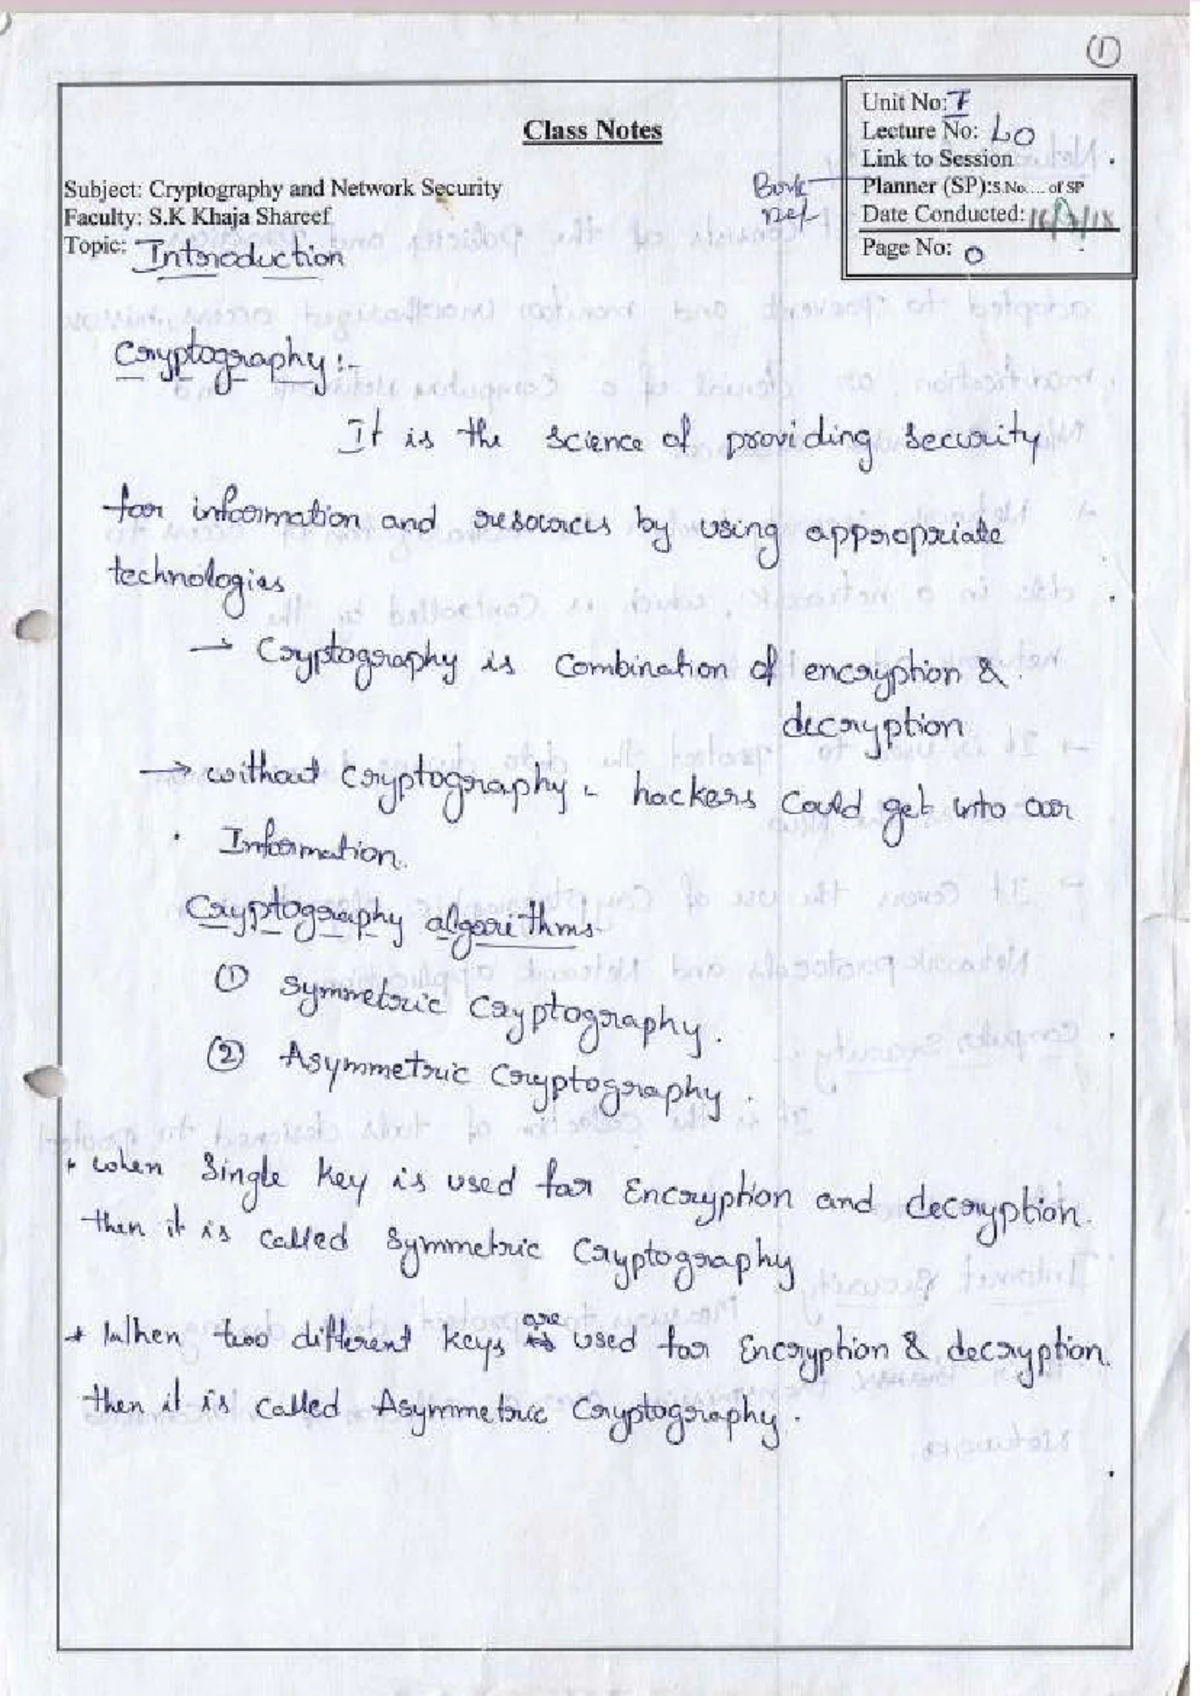 ①
Class Notes
Unit No: I
Lecture No: L0
Link to Session
Planner (SP):S.No.... of SP
Date Conducted:
Page No: 0
Subject: Cryptography and Network Security
Faculty: S.K Khaja Shareef
Topic: Introduction
Cryptography :-
It is the science of providing security
for information and resources by using appropriate
technologies
→ Cryptography is Combination of encryption &
decryption
→ without cryptography, hackers could get into our
Information.
Cryptography algorithms
① Symmetric Cryptography.
② Asymmetric Cryptography.
* when Single key is used for Encryption and decryption.
then it is called Symmetric Cryptography
* When two different keys are used for Encryption & decryption.
then it is called Asymmetric Cryptography.